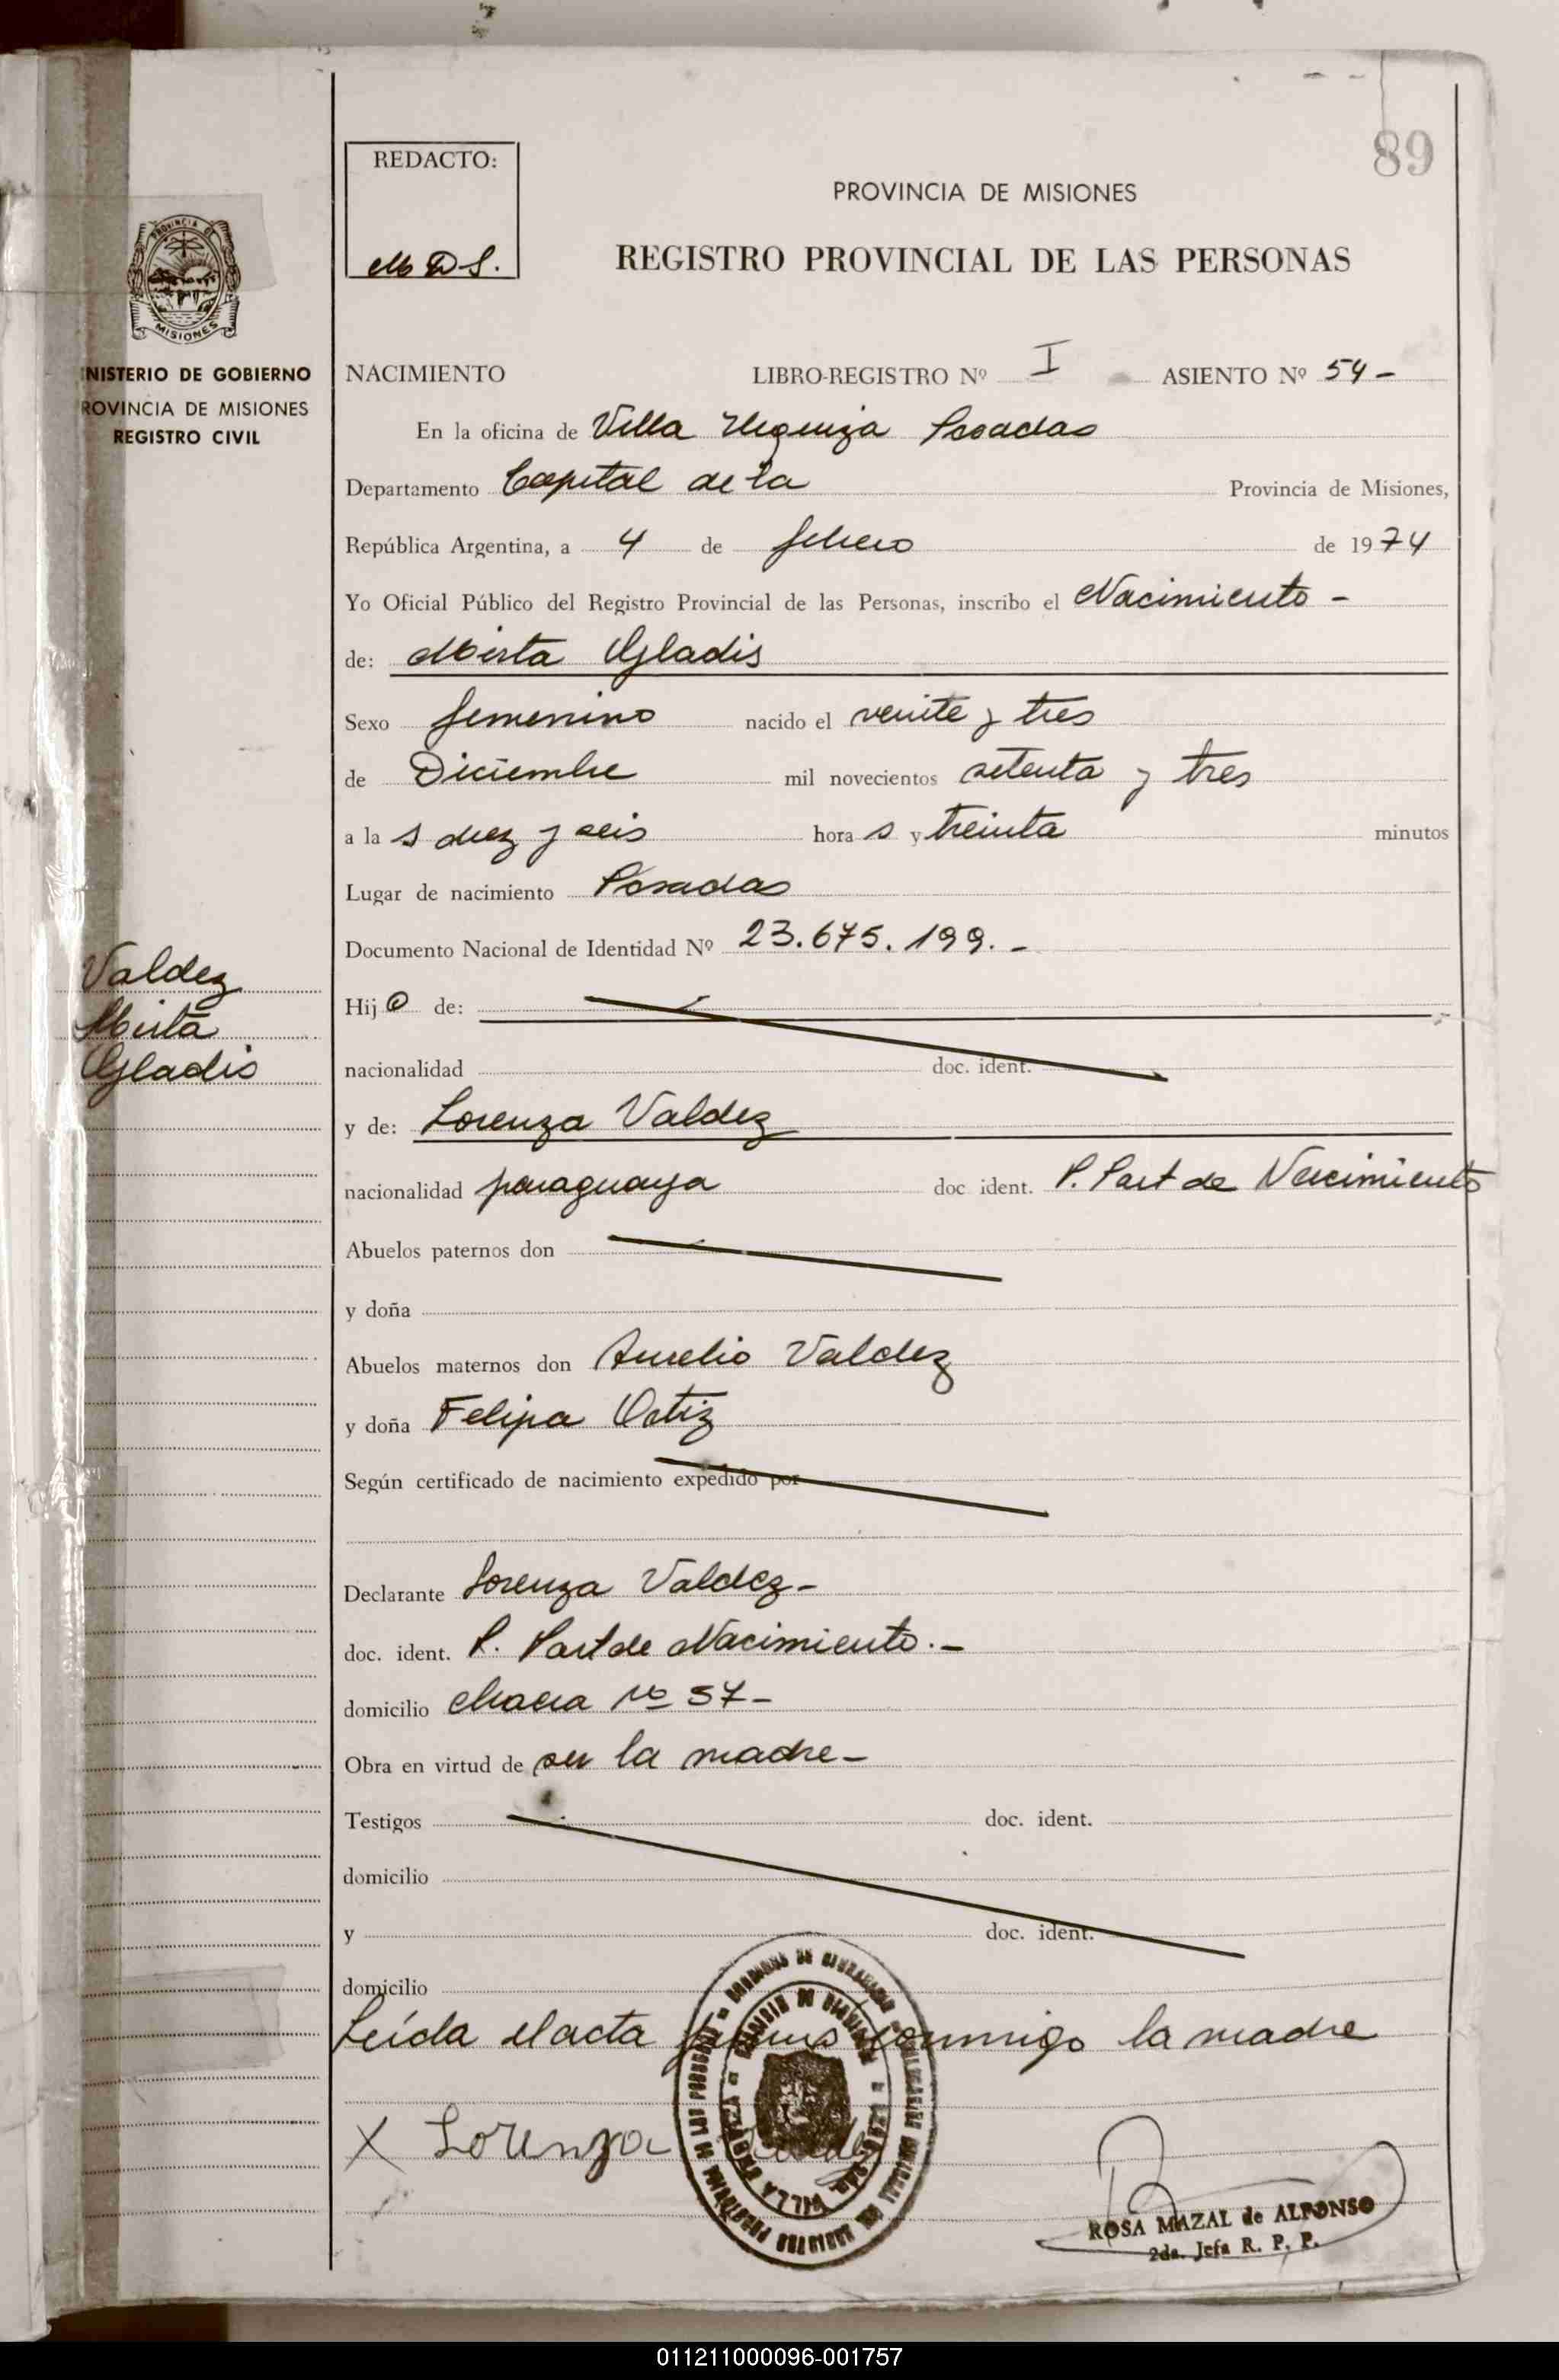 89
REDACTO:
M D S.
PROVINCIA DE MISIONES
REGISTRO PROVINCIAL DE LAS PERSONAS
PROVINCIA DE
MISIONES
NISTERIO DE GOBIERNO
ROVINCIA DE MISIONES
REGISTRO CIVIL
NACIMIENTO LIBRO-REGISTRO Nº I ASIENTO Nº 54-
En la oficina de Villa Urquiza Posadas
Departamento Capital de la Provincia de Misiones,
República Argentina, a 4 de febrero de 1974
Yo Oficial Público del Registro Provincial de las Personas, inscribo el Nacimiento -
de: Mirta Gladis
Sexo femenino nacido el veinte y tres
de Diciembre mil novecientos setenta y tres
a la s diez y seis hora s y treinta minutos
Lugar de nacimiento Posadas
Documento Nacional de Identidad Nº 23.675.199.-
Valdez
Mirta
Gladis
Hij a de:
nacionalidad doc. ident.
y de: Lorenza Valdez
nacionalidad paraguaya doc ident. P. Part de Nacimiento
Abuelos paternos don
y doña
Abuelos maternos don Aurelio Valdez
y doña Felipa Ortiz
Según certificado de nacimiento expedido por
Declarante Lorenza Valdez-
doc. ident. P. Part de Nacimiento.-
domicilio Chacra Nº 57-
Obra en virtud de ser la madre-
Testigos doc. ident.
domicilio
y doc. ident.
domicilio
Leída el acta firma conmigo la madre
X Lorenza
VILLA URQUIZA
ROSA MAZAL de ALFONSO
2da. Jefa R. P. P.
011211000096-001757